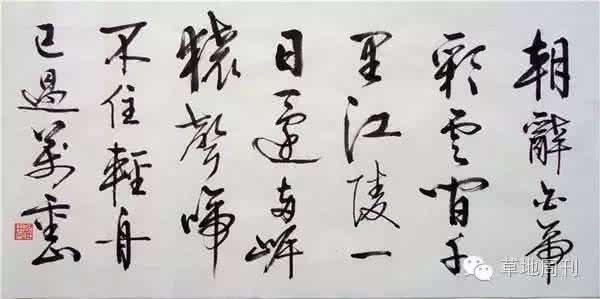 朝辭白帝
彩雲間千
里江陵一
日還兩岸
猿聲啼
不住輕舟
已過萬重山
草地周刊